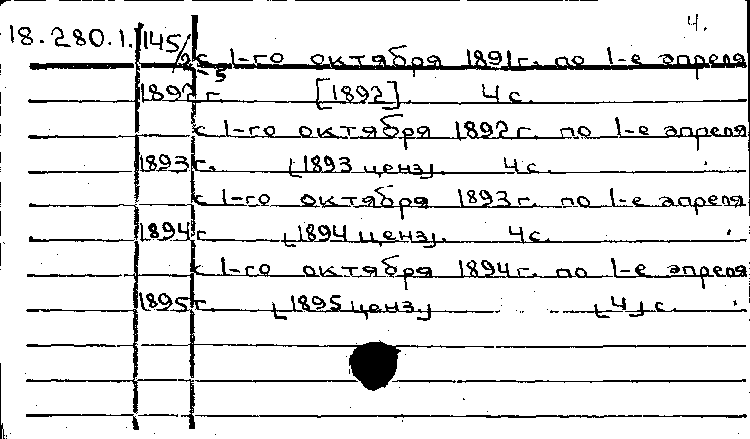 4.
18.280.1. 145/2-5 с 1-го октября 1891г. по 1-е апреля
1892 г. [1892]. 4 с.
с 1-го октября 1892г. по 1-е апреля
1893 г. [1893 ценз]. 4 с.
с 1-го октября 1893г. по 1-е апреля
1894 г. [1894 ценз]. 4 с.
с 1-го октября 1894г. по 1-е апреля
1895 г. [1895 ценз.] [4] с.